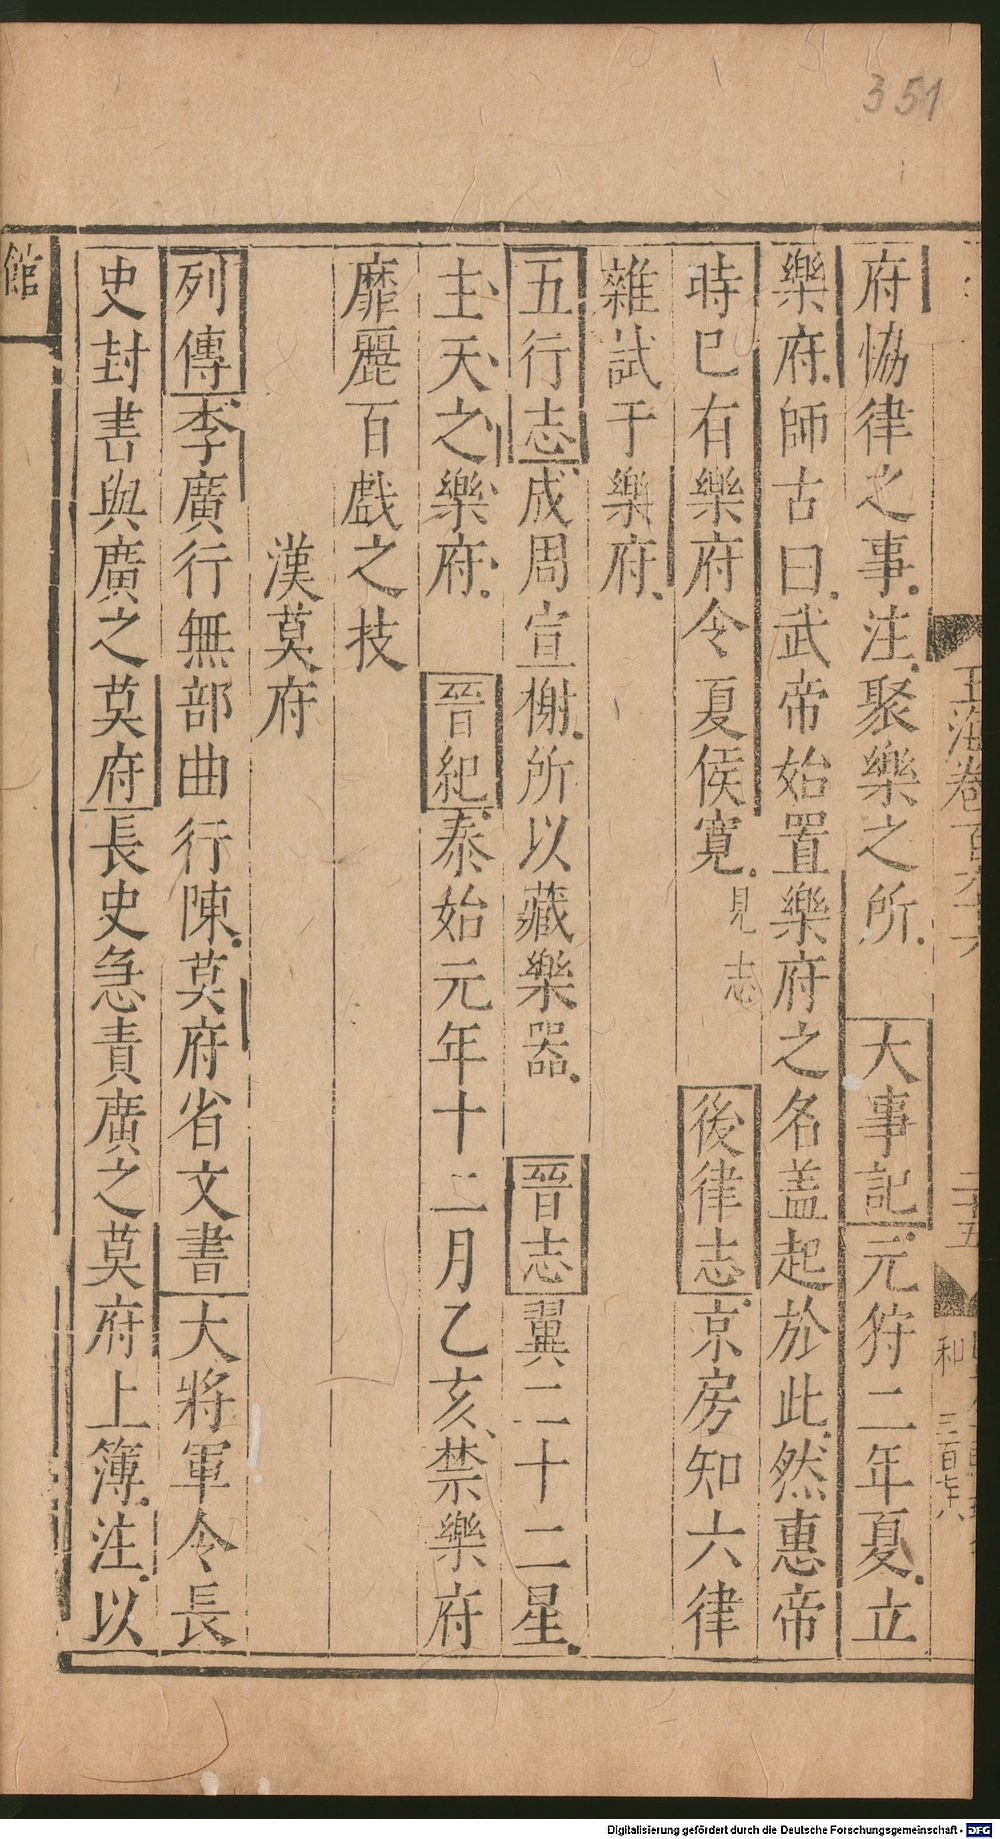 351
玉海卷百六十六
二十五
和
三百七十八
府恊律之事注聚樂之所　大事記元狩二年夏立
樂府師古曰武帝始置樂府之名盖起於此然惠帝
時已有樂府令夏侯寬見志　後律志京房知六律
雜試于樂府
五行志成周宣榭所以藏樂器　晉志翼二十二星
主天之樂府　晉紀泰始元年十二月乙亥禁樂府
靡麗百戲之技
漢莫府
列傳李廣行無部曲行陳莫府省文書大將軍令長
史封書與廣之莫府長史急責廣之莫府上簿注以
館
Digitalisierung gefördert durch die Deutsche Forschungsgemeinschaft - DFG